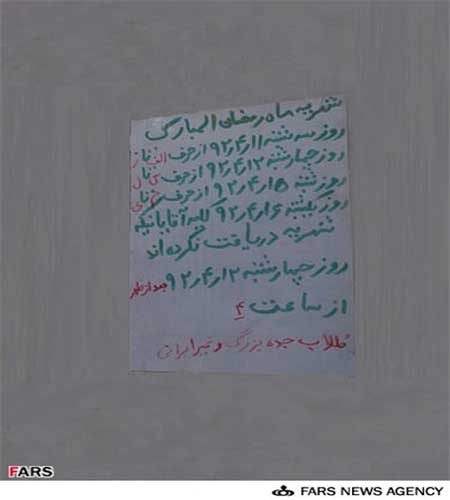 شهریه ماه رمضان المبارک
روز سه شنبه ۹۲٫۴٫۱۱ از حرف الف تا
روز چهارشنبه ۹۲٫۴٫۱۲ از حرف تا
روز شنبه ۹۲٫۴٫۱۵ از حرف تا ی
روز یکشنبه ۹۲٫۴٫۱۶ کلیه آقایانیکه
شهریه دریافت نکرده اند
روز چهارشنبه ۹۲٫۴٫۱۲ بعد از ظهر
از ساعت ۴
طلاب جدید بزرگ و غیر ایرانی
FARS
FARS NEWS AGENCY